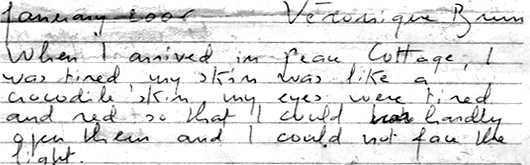 January 2001 Véronique Brun
When I arrived in Peace Cottage, I
was tired, my skin was like a
crocodile skin, my eyes were tired
and red so that I could hardly
open them and I could not face the
light.